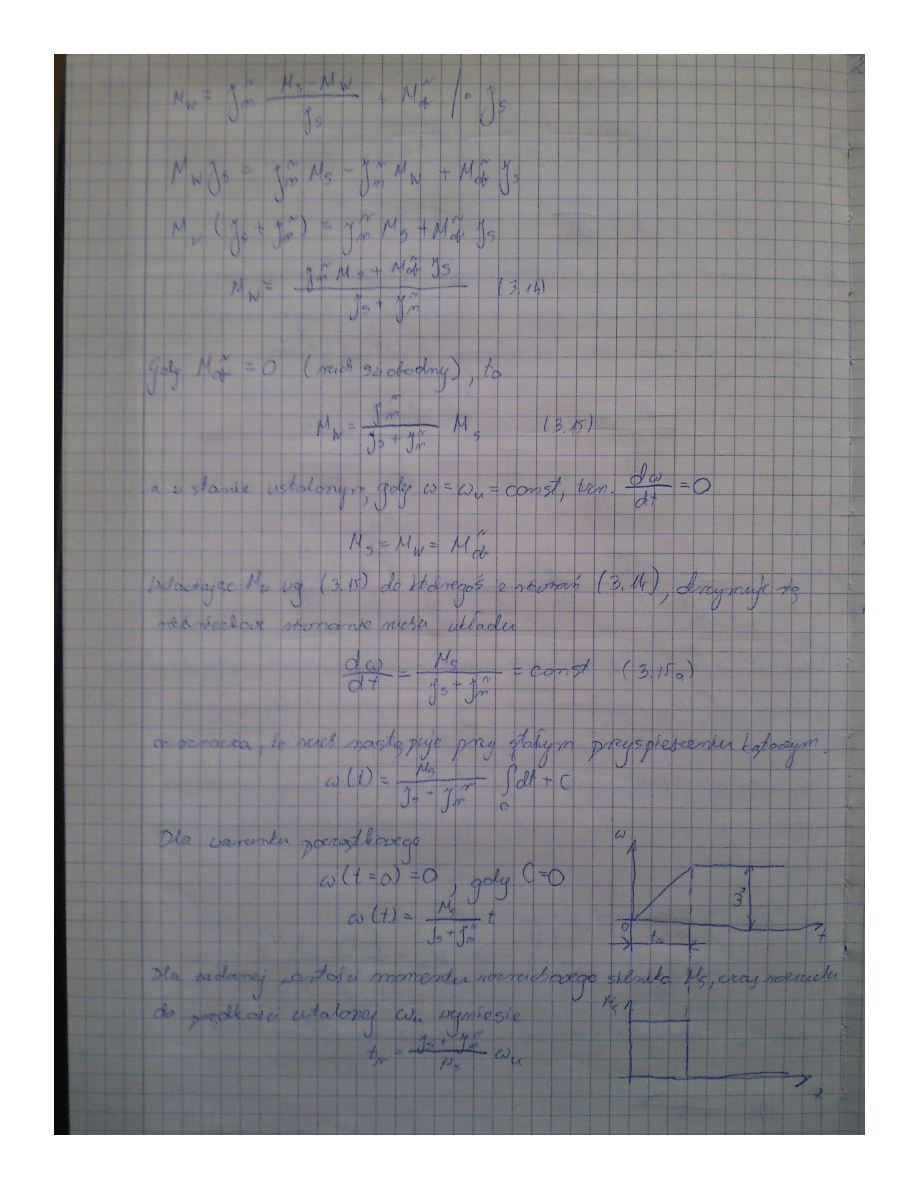 2
M_w = J_m^~ (M_s - M_w)/J_s + M_ob^~ /· J_s
M_w J_s = J_m^~ M_s - J_m^~ M_w + M_ob^~ J_s
M_w (J_s + J_m^~) = J_m^~ M_s + M_ob^~ J_s
M_w = (J_m^~ M_s + M_ob^~ J_s)/(J_s + J_m^~) (3.14)
Gdy M_ob^~ = 0 (ruch swobodny), to
M_w = J_m^~/(J_s + J_m^~) M_s (3.15)
a w stanie ustalonym, gdy ω = ω_u = const, tzn. dω/dt = 0
M_s = M_w = M_ob^~
Wstawiając M_w wg (3.15) do któregoś z równań (3.14), otrzymuje się
różniczkowe równanie ruchu układu
dω/dt = M_s/(J_s + J_m^~) = const (3.15a)
co oznacza, że ruch następuje przy stałym przyspieszeniu kątowym.
ω(t) = M_s/(J_s + J_m^~) ∫_0 dt + C
Dla warunku początkowego
ω(t=0) = 0, gdy C = 0
ω(t) = M_s/(J_s + J_m^~) t
ω
0
t
Dla zadanej wartości momentu rozruchowego silnika M_s, czas rozruchu
do prędkości ustalonej ω_u wyniesie
t_r = (J_s + J_m^~)/M_s ω_u
M_s